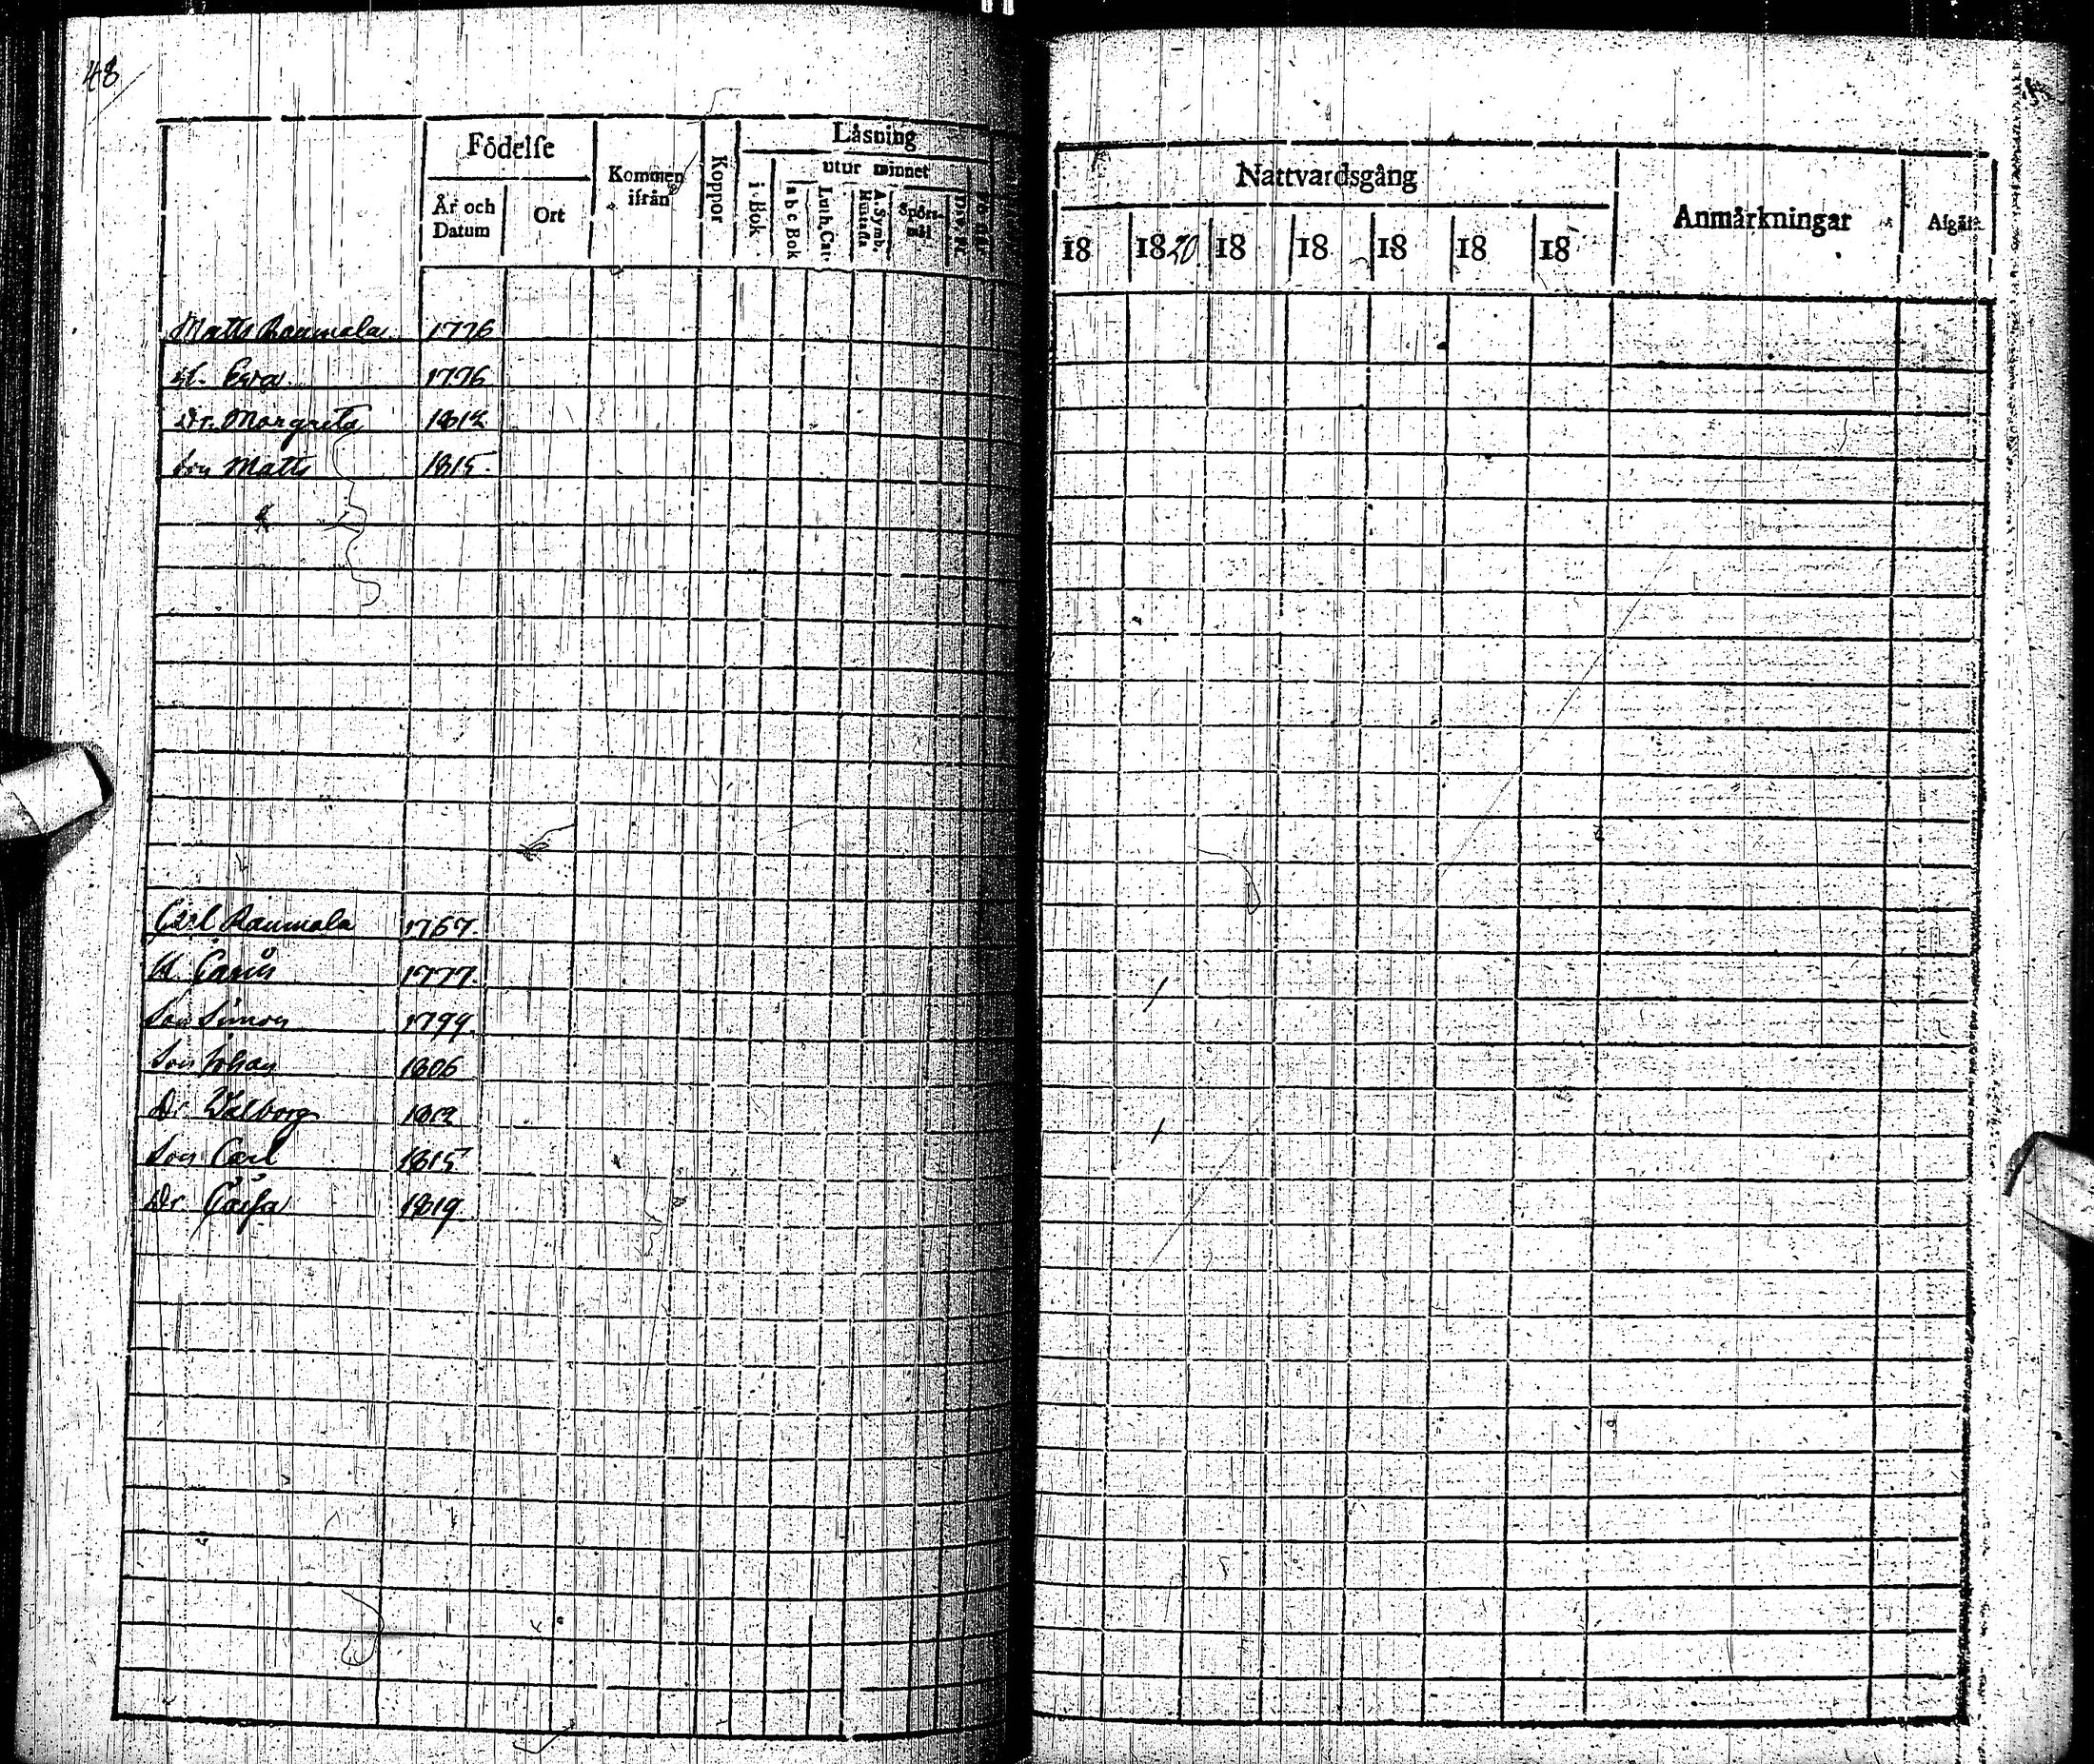 48
Födelse
Kommen ifrån
Koppor
Läsning
utur minnet
År och Datum
Ort
i Bok
a b c Bok
Luth. Cat.
A. Symb.
Spörs-mål
Nattvardsgång
Anmärkningar
Afgått
18 1820. 18 18 18 18 18
Matts Raumola 1776
H. Eva 1776
Dr. Margreta 1812
Son Matts 1815.
Carl Raumola 1767.
H. Carin 1777.
Son Simon 1799.
Son Johan 1806
Dr. Walborg 1812
Son Carl 1815
Dr. Caisa 1819